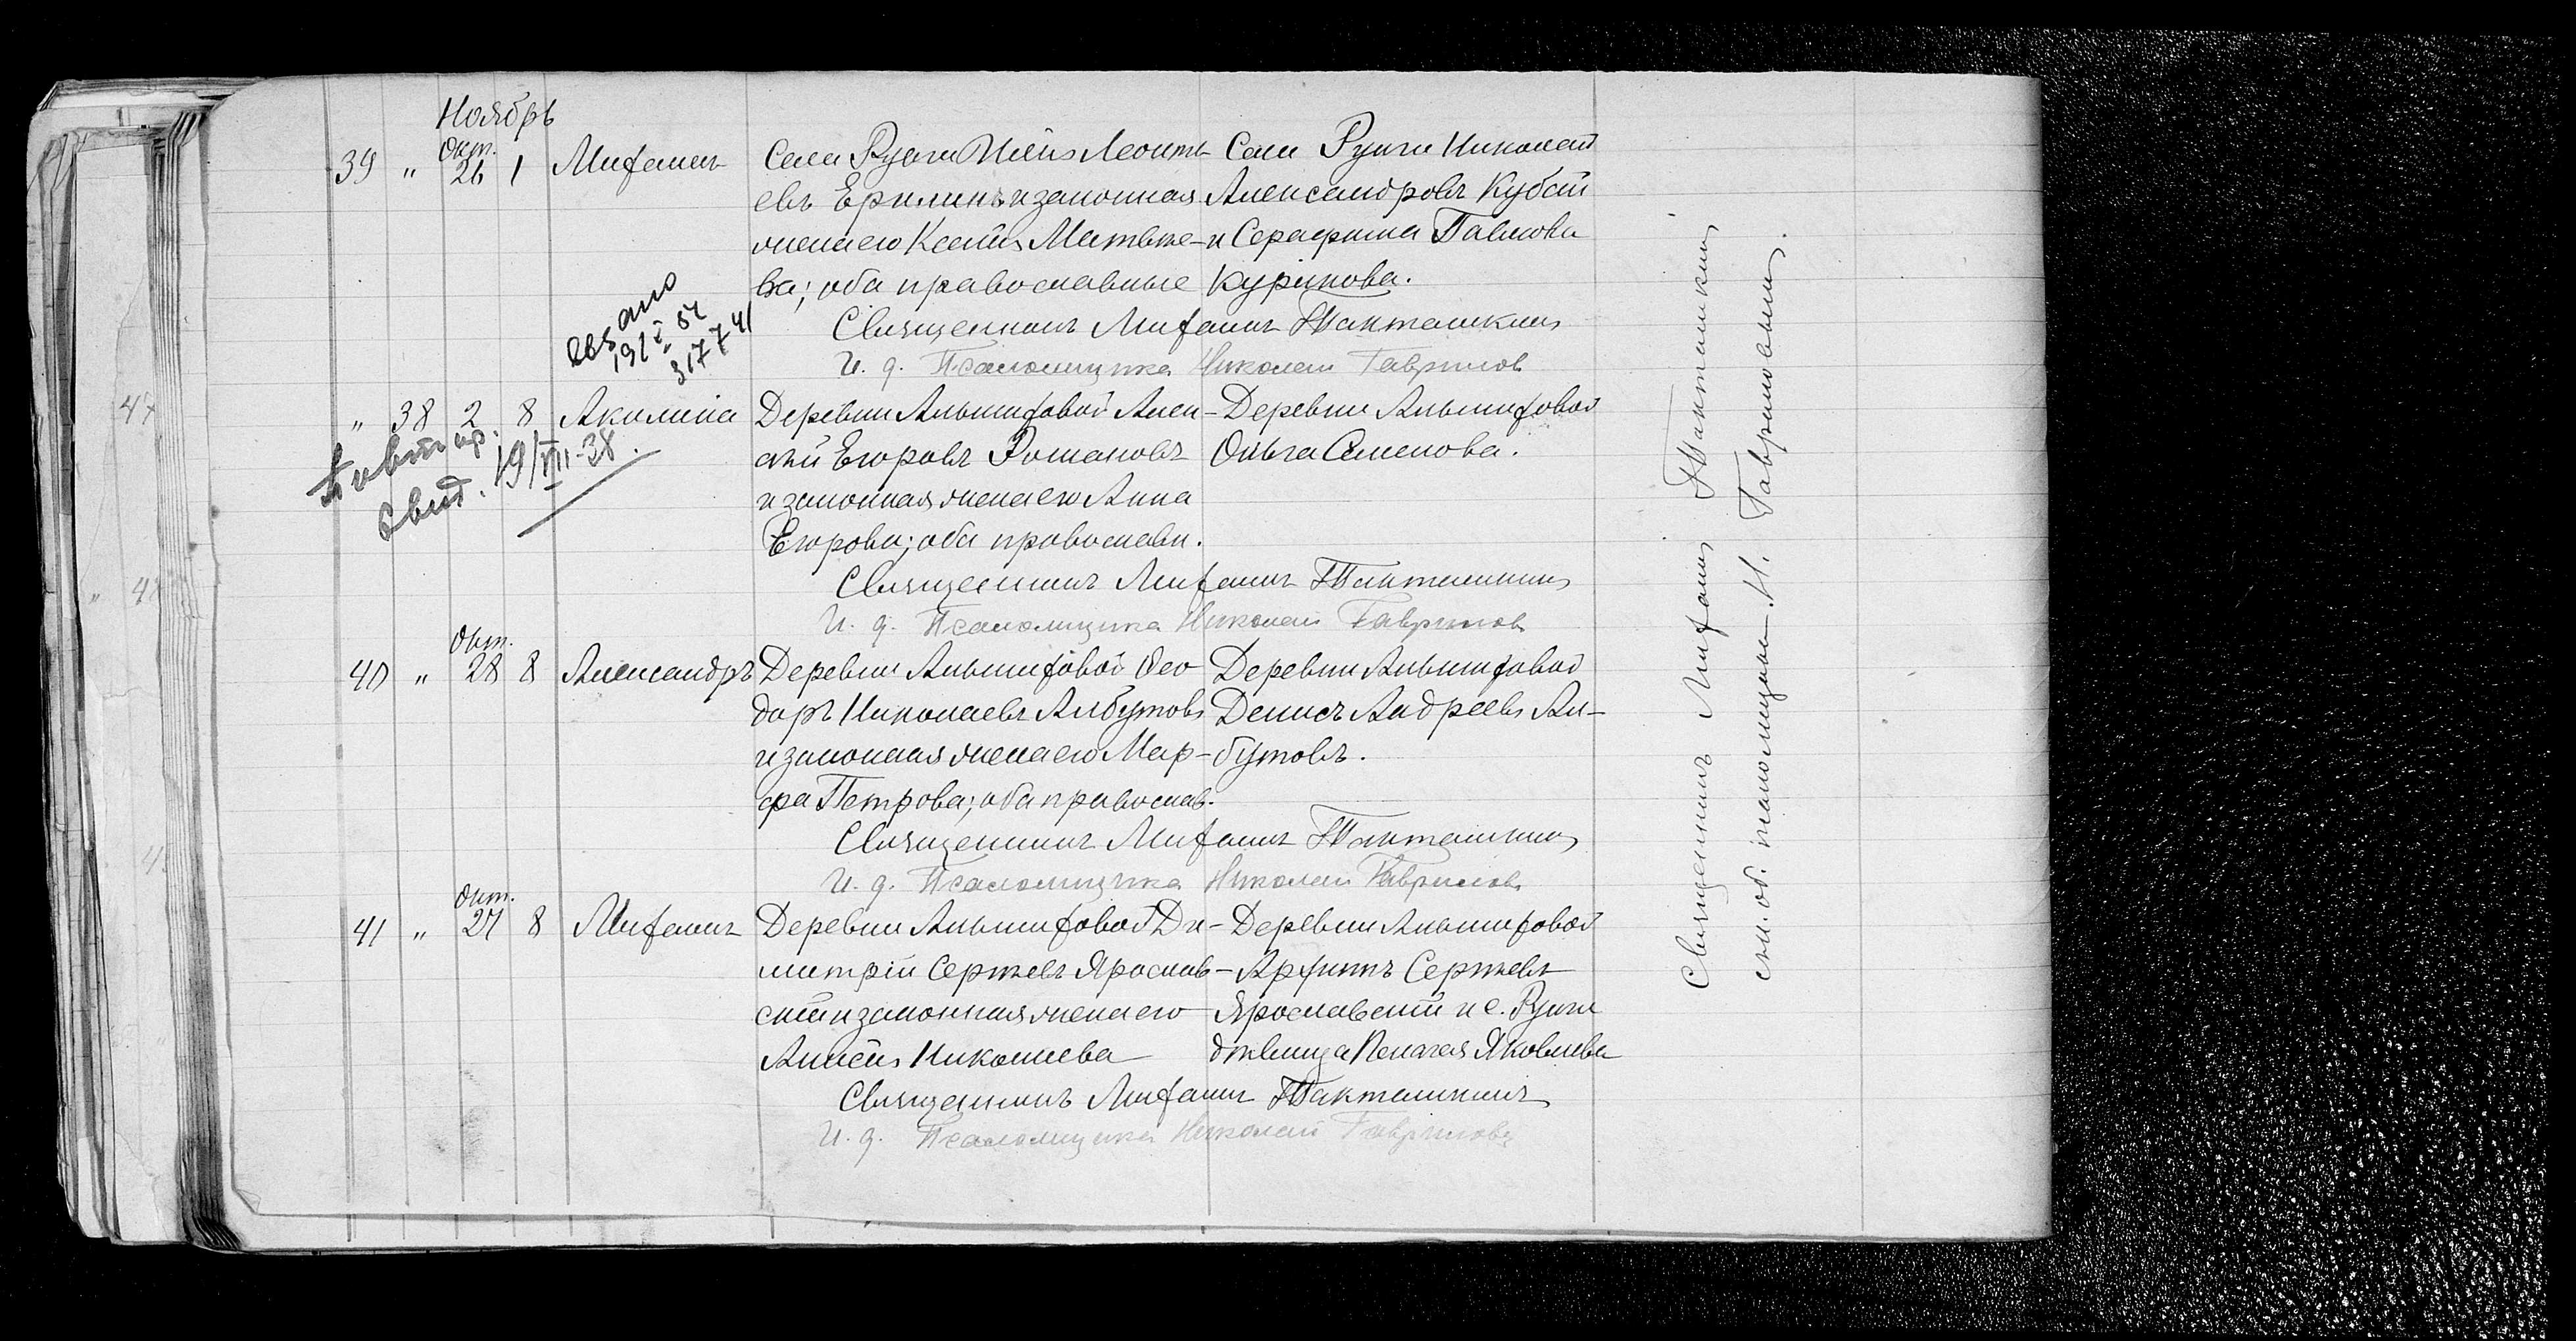 Ноябрь
39 " Окт. 26 1 Михаилъ
Села Рунги Илія Леонть-
евъ Ерилинъ и законная
жена его Ксенія Матвѣе-
ва; оба православные
Села Рунги Николай
Александровъ Кубай
и Серафима Павлова
Курикова.
Священникъ Михаилъ Тахташкинъ
И. д. Псаломщика Николай Гаврилов
" 38 2 8 Акилина
Повтор.
Свид. 19/VIII-38.
Деревни Альшиховой Алек-
сѣй Егоровъ Романовъ
и законная жена его Анна
Егорова; оба православн.
Деревни Альшиховой
Ольга Семенова.
Священникъ Михаилъ Тахташкинъ
И. д. Псаломщика Николай Гаврилов
40 " Окт. 28 8 Александръ
Деревни Альшиховой Ѳео-
доръ Николаевъ Албутовъ
и законная жена его Мар-
фа Петрова; оба православ.
Деревни Альшиховой
Денисъ Андреевъ Ал-
бутовъ.
Священникъ Михаилъ Тахташкинъ
И. д. Псаломщика Николай Гаврилов
41 " Окт. 27 8 Михаилъ
Деревни Альшиховой Ди-
митрій Сергѣевъ Ярослав-
скій и законная жена его
Николаева
Деревни Альшиховой
Сергѣевъ
Ярославскій и с. Рунги
дѣвица Пелагея Яковлева
Священникъ Михаилъ Тахташкинъ
И. д. Псаломщика Николай Гаврилов
Священникъ Михаилъ Тахташкинъ
псаломщика Н. Гавриловъ.